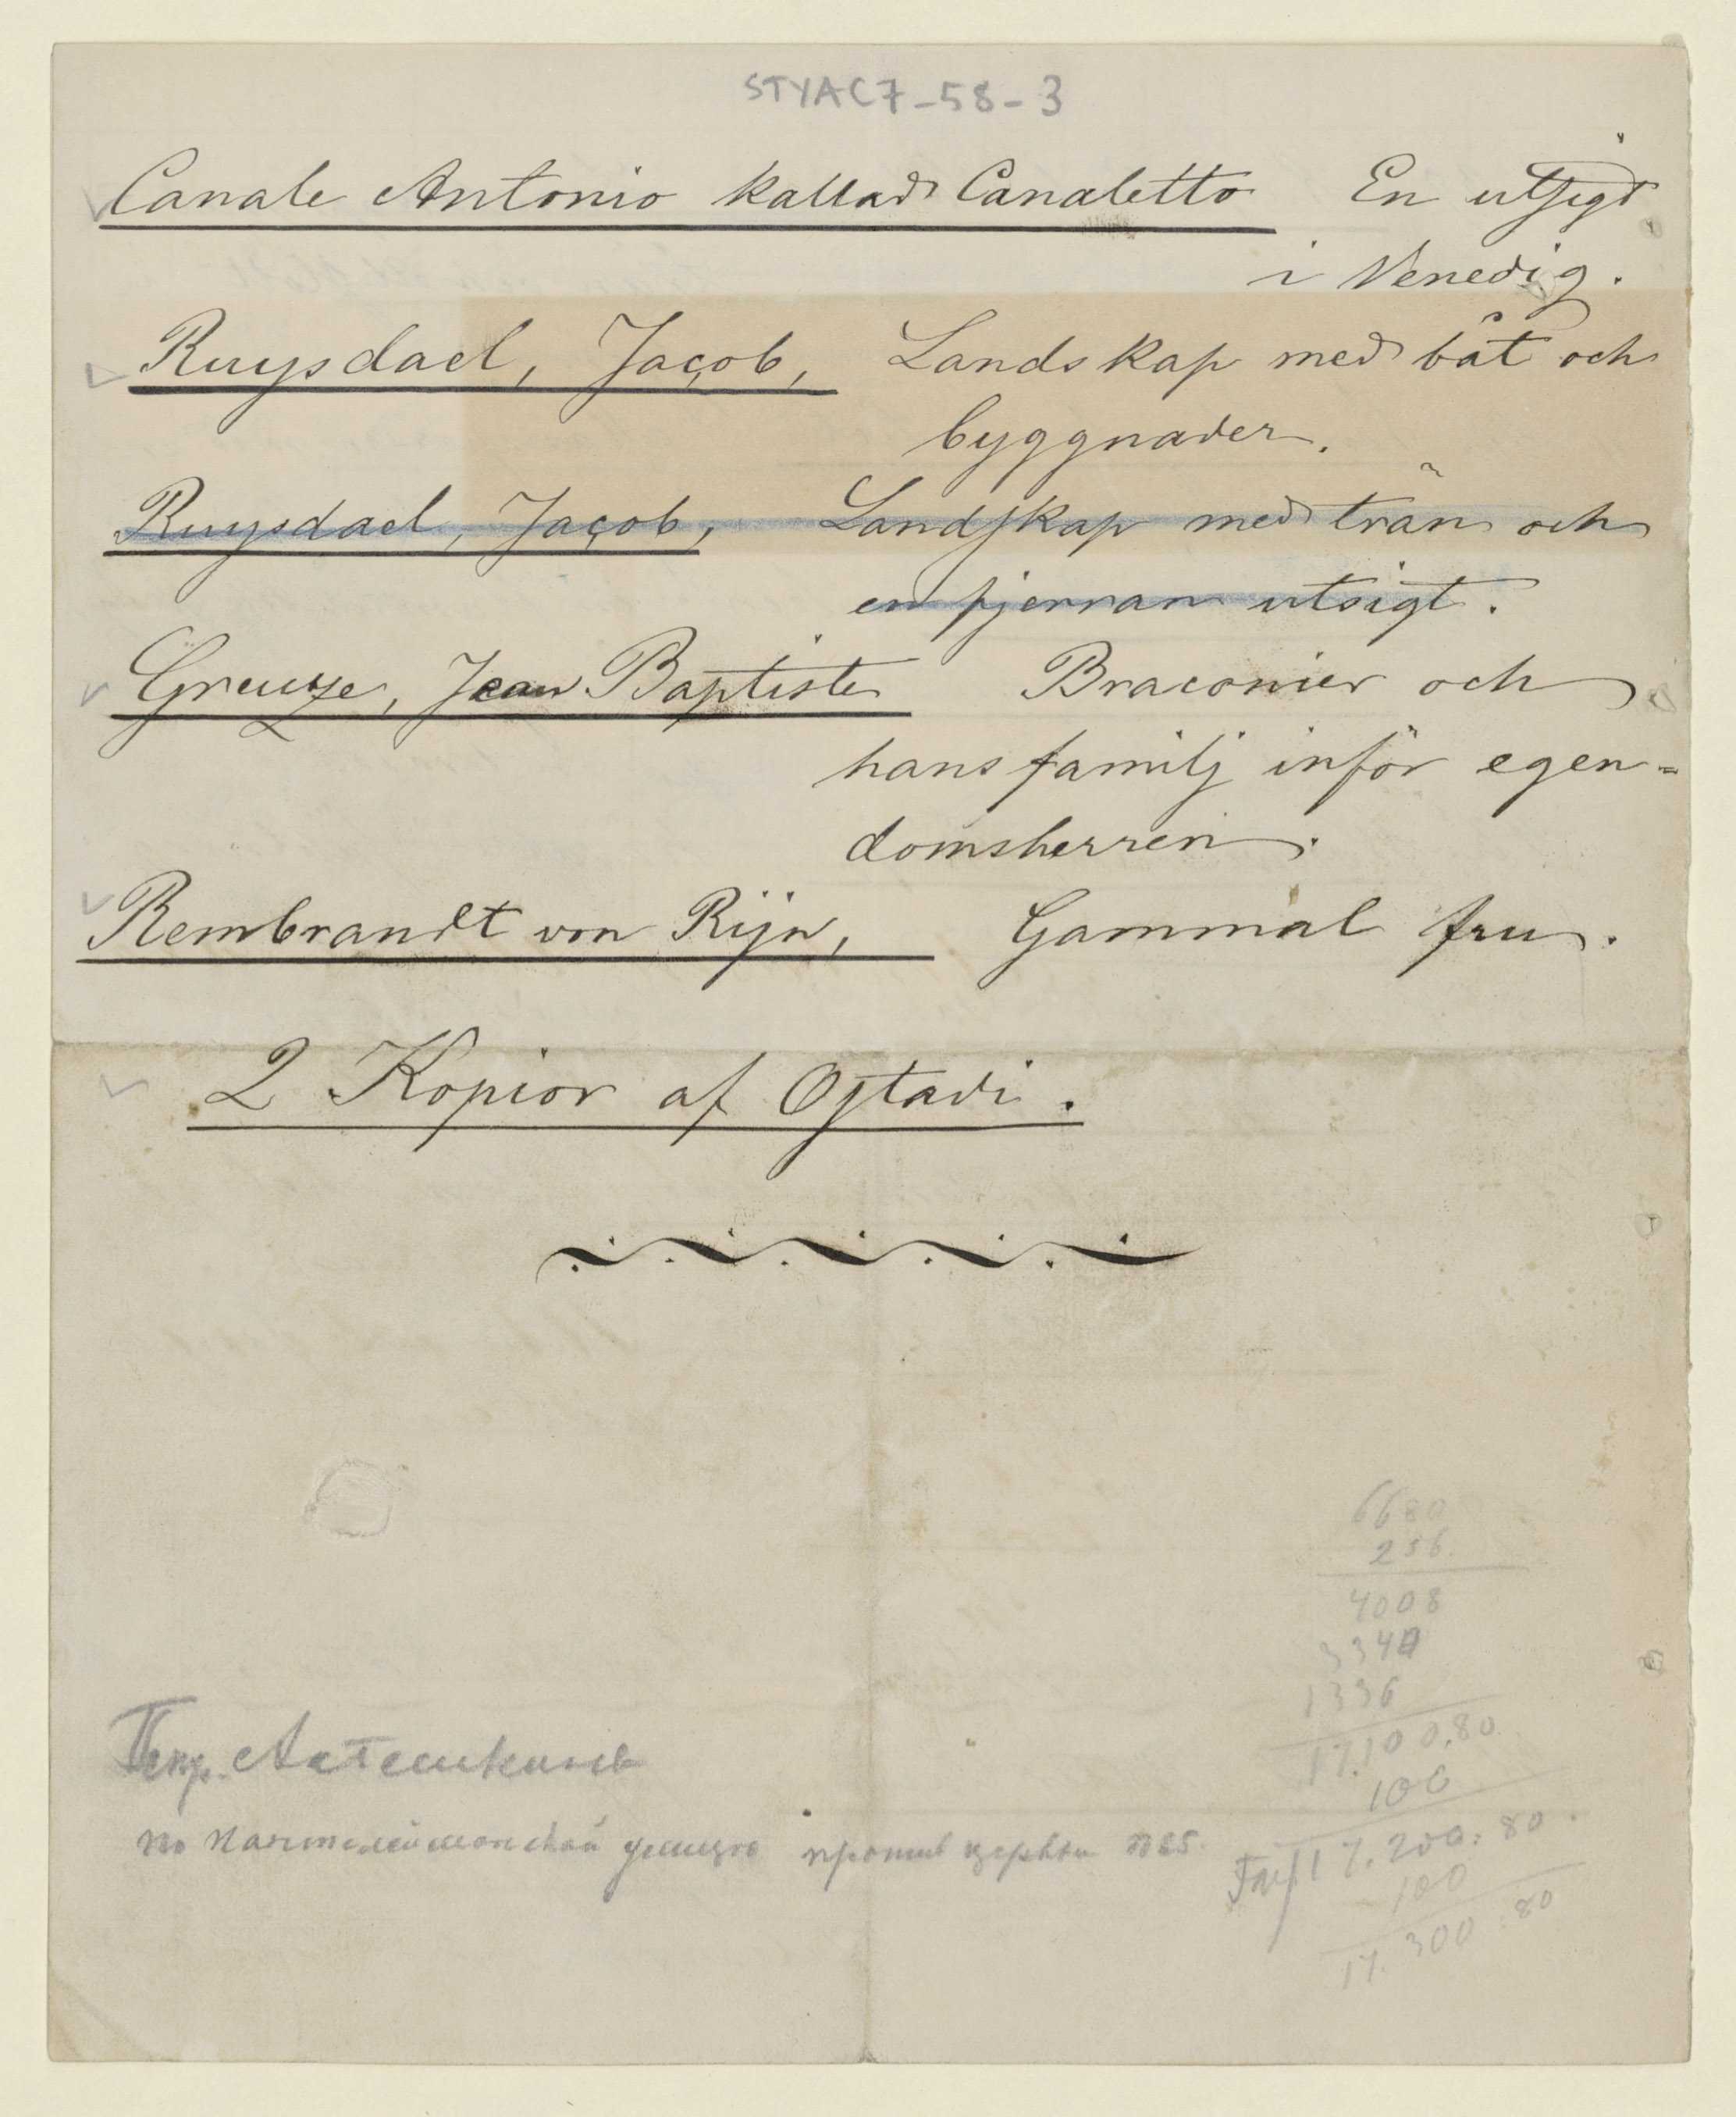 STYAC7-58-3
Canale Antonio kallad Canaletto En utsigt
i Venedig.
Ruysdael, Jacob, Landskap med båt och
byggnader.
Ruysdael, Jacob, Landskap med trän och
en fjerran utsigt.
Greuze, Jean Baptiste Braconier och
hans familj inför egen=
domsherren.
Rembrandt von Rijn, Gammal fru.
2 Kopior af Ostadi.
6680
256
4008
3340
1336
17.100,80
100
17.200:80.
100
17.300:80
по Пантелеймонской улицы против церкви №25.